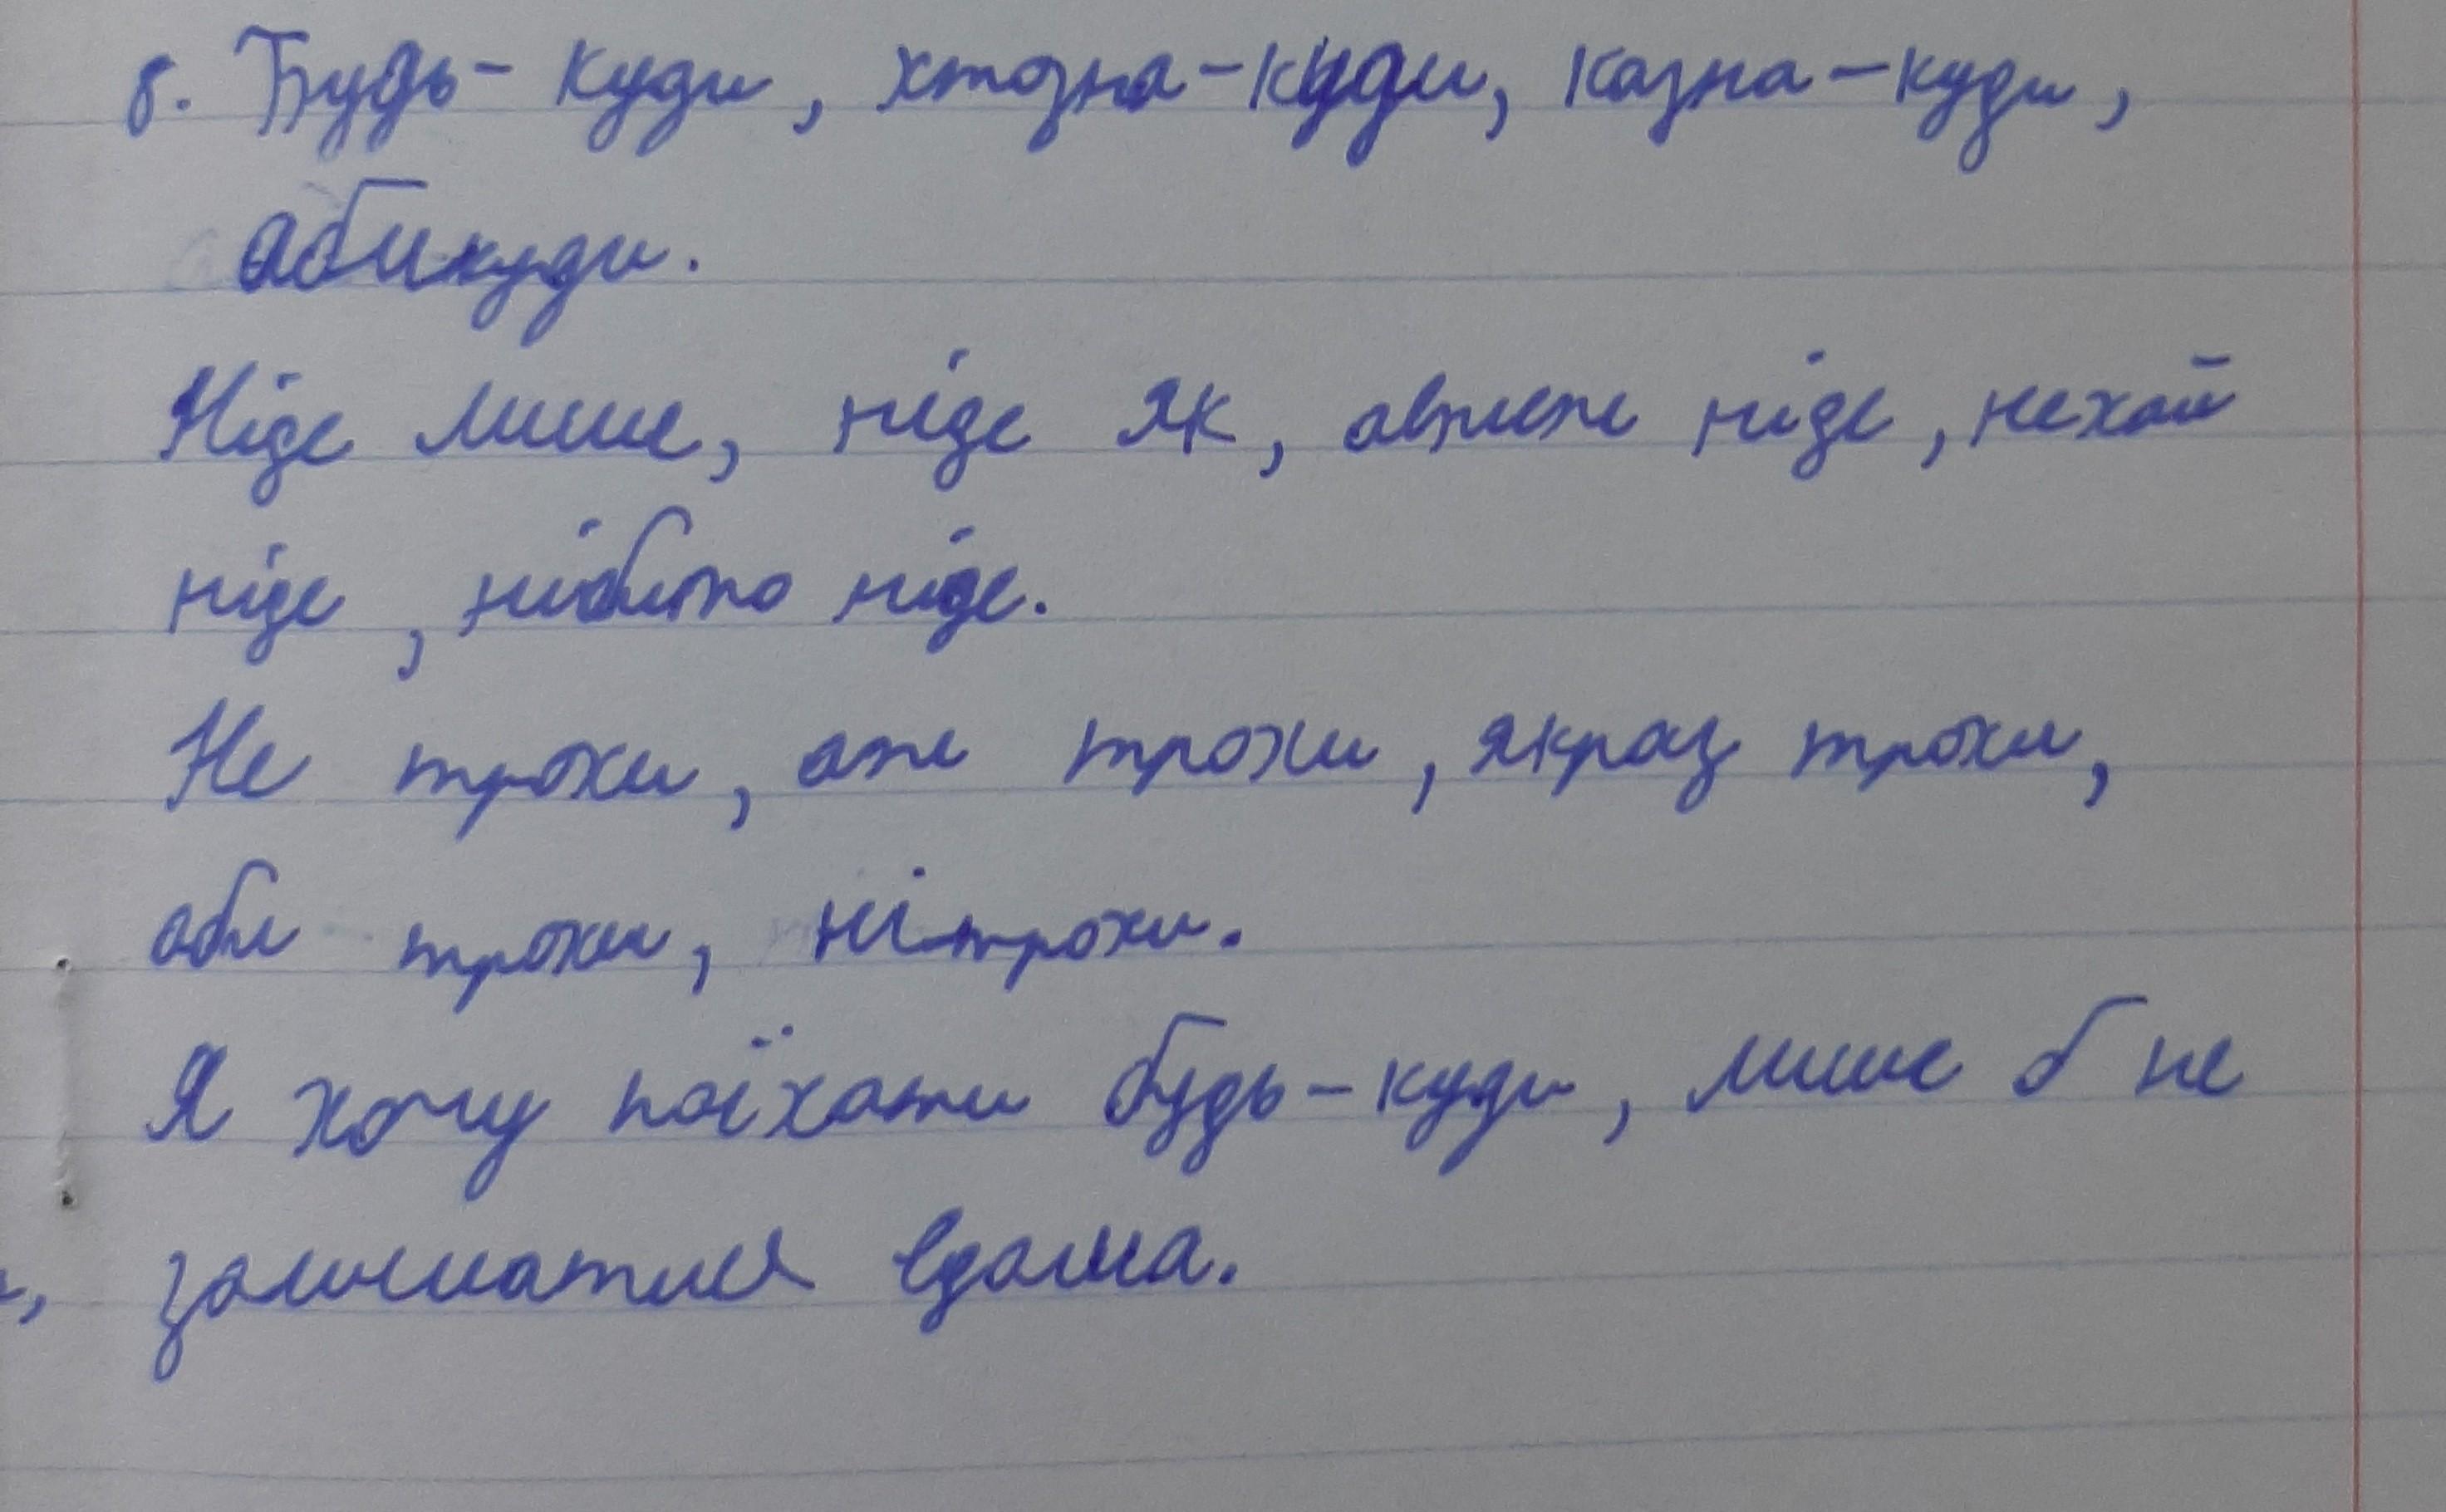 8. Будь-куди, хтозна-куди, казна-куди,
абикуди.
Ніде лише, ніде як, авжеж ніде, нехай
ніде, нібито ніде.
Не трохи, аже трохи, якраз трохи,
аби трохи, нітрохи.
Я хочу поїхати будь-куди, лише б не
залишатися вдома.